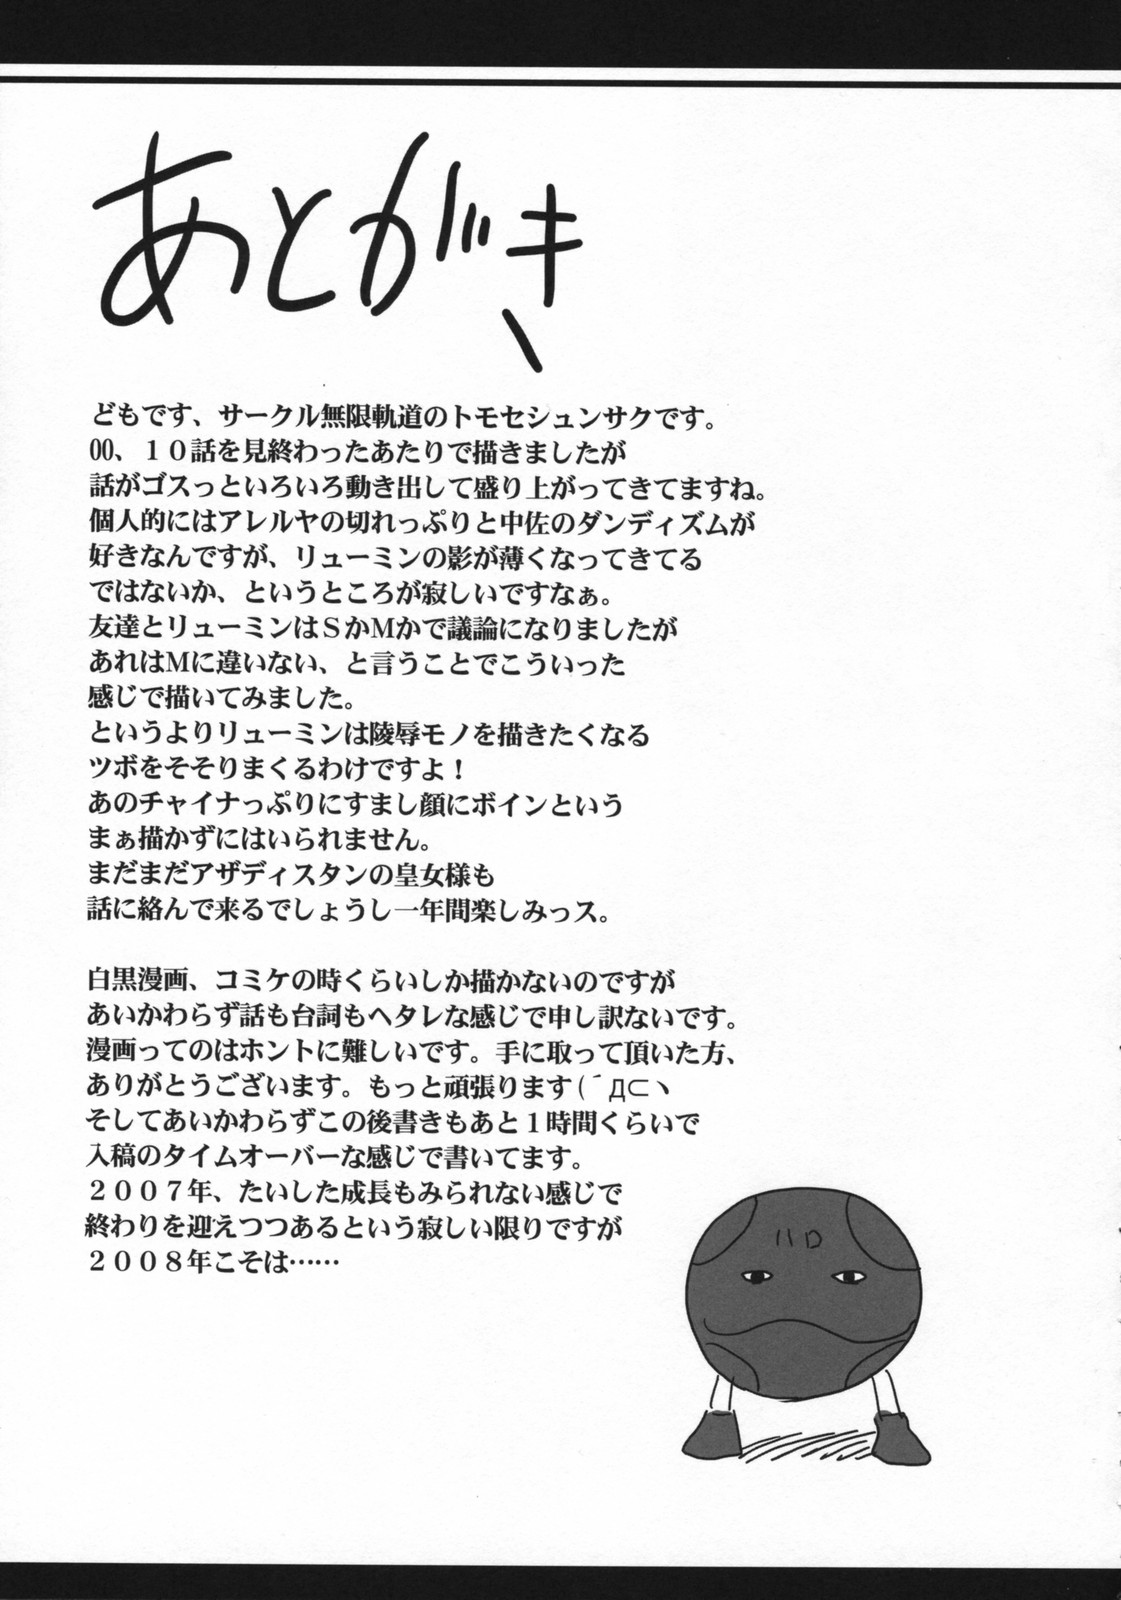 あとがき
どもです、サークル無限軌道のトモセシュンサクです。
00、１０話を見終わったあたりで描きましたが
話がゴスっといろいろ動き出して盛り上がってきてますね。
個人的にはアレルヤの切れっぷりと中佐のダンディズムが
好きなんですが、リューミンの影が薄くなってきてる
ではないか、というところが寂しいですなぁ。
友達とリューミンはＳかＭかで議論になりましたが
あれはＭに違いない、と言うことでこういった
感じで描いてみました。
というよりリューミンは陵辱モノを描きたくなる
ツボをそそりまくるわけですよ！
あのチャイナっぷりにすまし顔にボインという
まぁ描かずにはいられません。
まだまだアザディスタンの皇女様も
話に絡んで来るでしょうし一年間楽しみっス。
白黒漫画、コミケの時くらいしか描かないのですが
あいかわらず話も台詞もヘタレな感じで申し訳ないです。
漫画ってのはホントに難しいです。手に取って頂いた方、
ありがとうございます。もっと頑張ります(´д⊂ヽ
そしてあいかわらずこの後書きもあと１時間くらいで
入稿のタイムオーバーな感じで書いてます。
２００７年、たいした成長もみられない感じで
終わりを迎えつつあるという寂しい限りですが
２００８年こそは……
ハロ